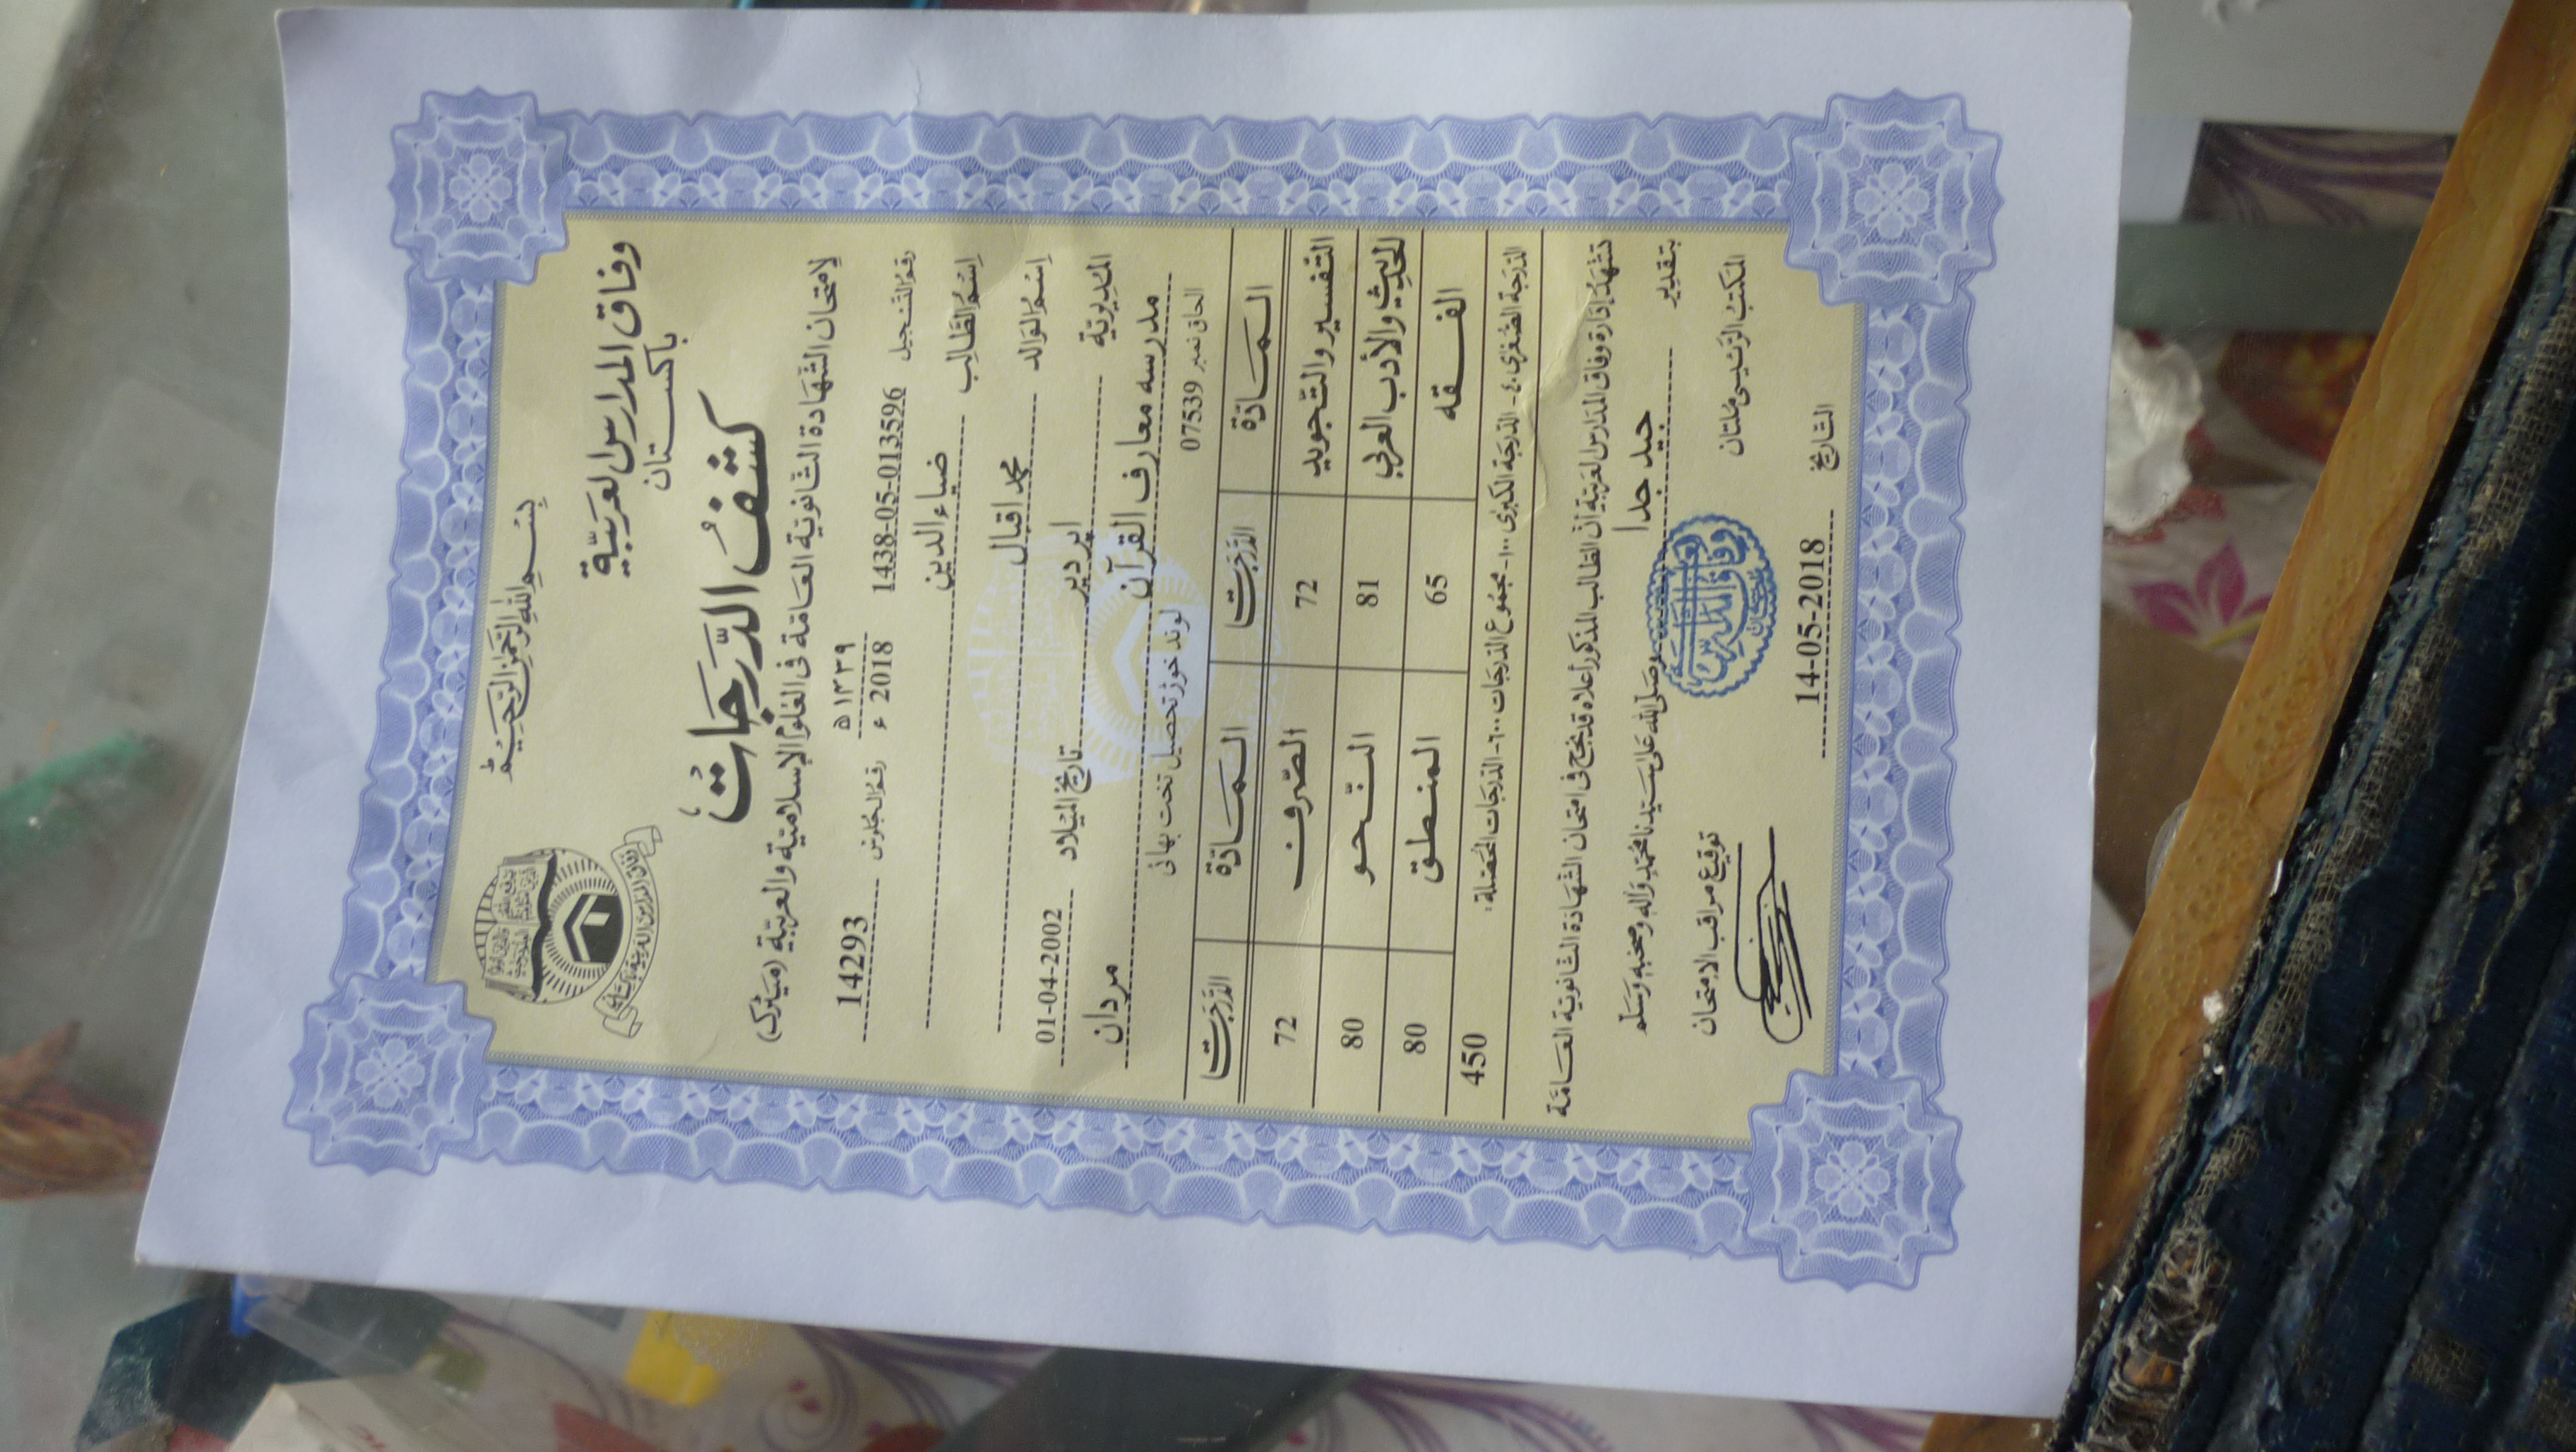 بِسْمِ اللهِ الرَّحْمٰنِ الرَّحِيْمِ
وفاق المدارس العربية
باكستان
كشفُ الدَّرَجَاتُ
لامتحان الشهادة الثانوية العامة فى العلوم الإسلامية والعربية (ميٹرک)
١٤٣٩ ھ
رقم التسجيل 1438-05-013596 2018 ء رقم الجلوس 14293
اسم الطالب ضياء الدين
اسم الوالد محمد اقبال
المديرية اپر دير تاريخ الميلاد 01-04-2002
مدرسه معارف القرآن مردان
الحاق نمبر 07539 لوند خوڑ تحصيل تخت بهائى
المادّة الدّرجات المادّة الدّرجات
التفسير والتّجويد 72 الصّرف 72
الحديث والأدب العربي 81 النّحو 80
الفقه 65 المنطق 80
الدرجة الصغرى ٤٠- الدرجة الكبرى ١٠٠- مجموع الدرجات ٦٠٠- الدرجات المحصلة: 450
تشهد إدارة وفاق المدارس العربية أن الطالب المذكور أعلاه قد نجح فى امتحان الشهادة الثانوية العامة
بتقدير جيد جدا وصلى الله على سيدنا محمد وآله وصحبه وسلم
المكتب الرئيسى ملتان توقيع مراقب الامتحان
التاريخ 14-05-2018